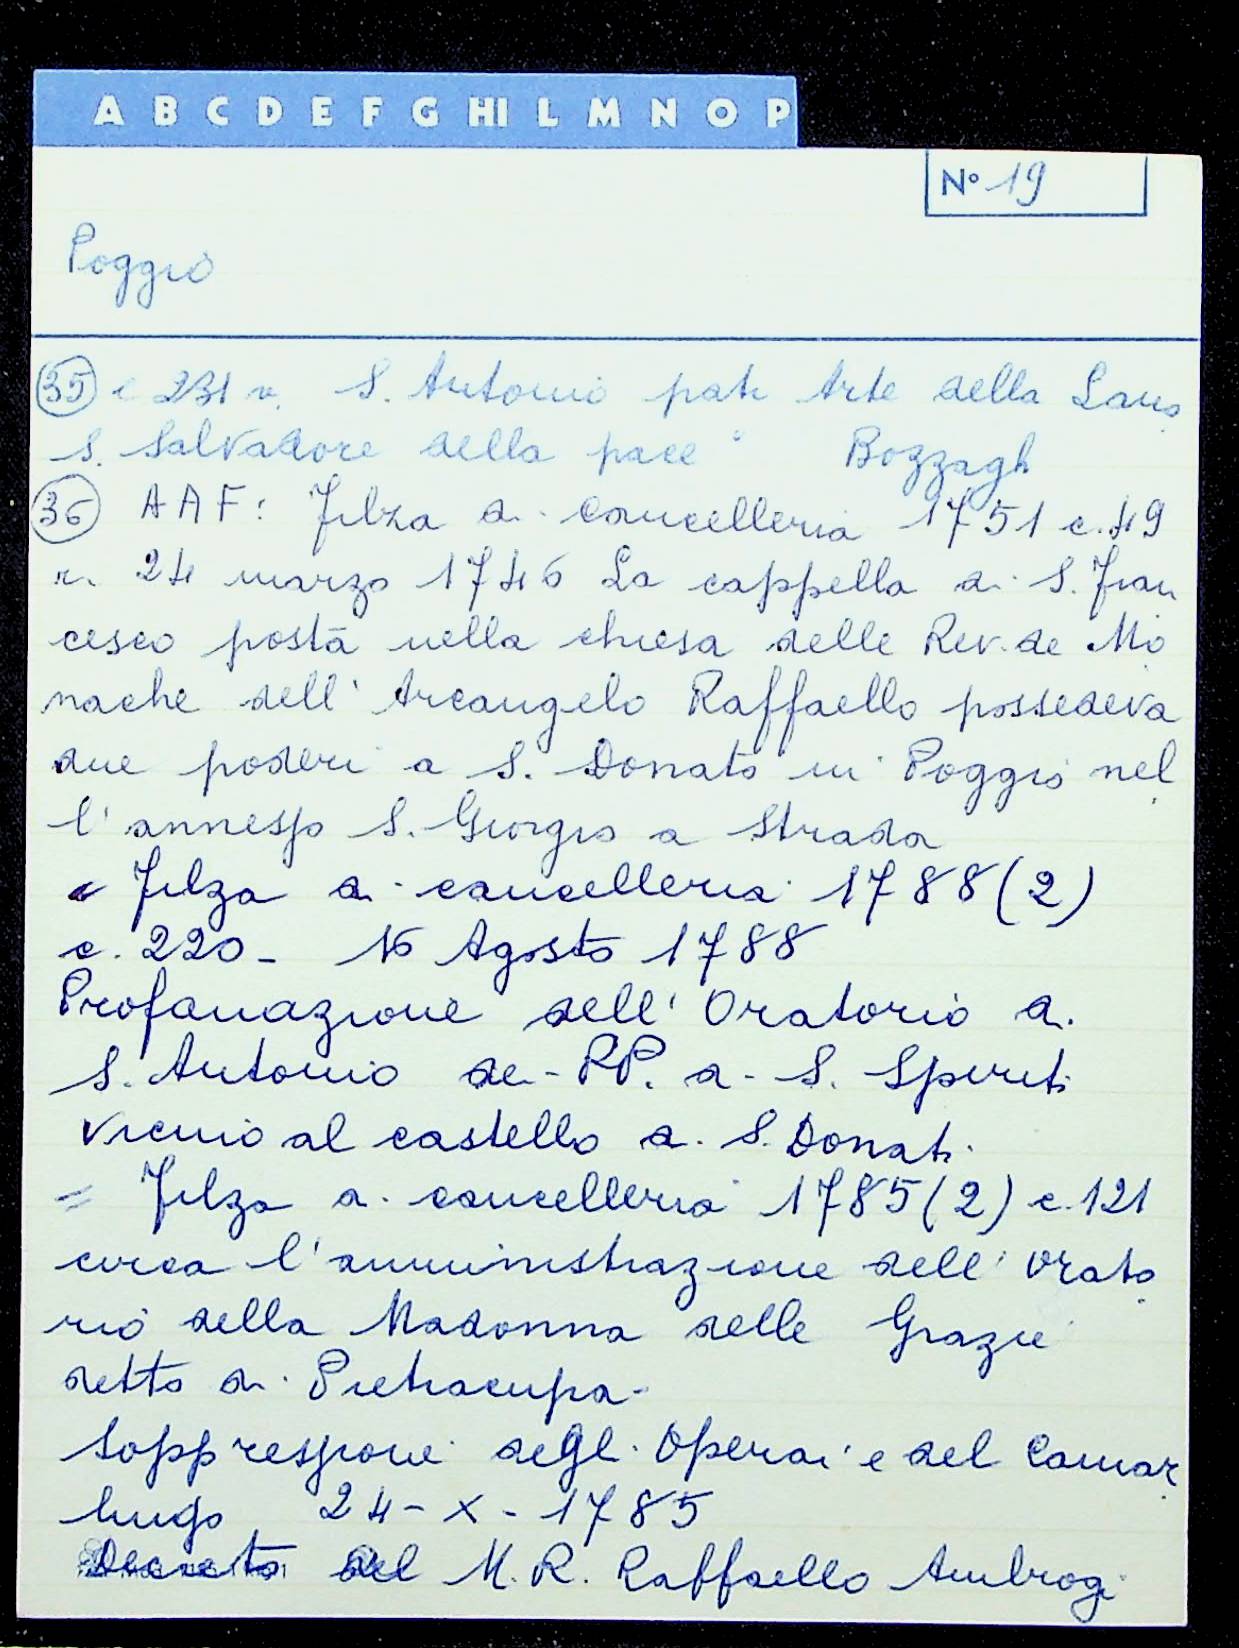 A B C D E F G HI L M N O P
N° 19
Poggio
35 c 231 v. S. Antonio patr Arte della Lana
S. Salvadore della pace Bozzagh
36 AAF: Filza di cancelleria 1751 c. 49
r. 24 marzo 1746 La cappella di S. Fran
cesco posta nella chiesa delle Rev.de Mo
nache dell' Arcangelo Raffaello possedeva
due poderi a S. Donato in Poggio nel
l'annesso S. Giorgio a Strada
Filza di cancelleria 1788 (2)
c. 220 - 16 Agosto 1788
Profanazione dell' Oratorio di
S. Antonio dei PP. di S. Spirito
vicino al castello di S. Donato
= Filza di cancelleria 1785 (2) c. 121
circa l'amministrazione dell' Orato
rio della Madonna delle Grazie
detto di Pietracupa-
Soppressione degli Operai e del Camar
lingo 24-X-1785
Decreto del M. R. Raffaello Ambrogi